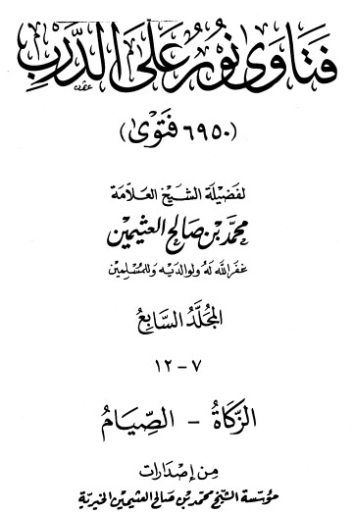 فَتَاوَىٰ نُورٌ عَلَى الدَّرْبِ
(٦٩٥٠ فَتْوَىٰ)
لفضيلة الشيخ العلامة
محمد بن صالح العثيمين
غفر الله له ولوالديه وللمسلمين
المجلَّد السَّابِعُ
٧ - ١٢
الزَّكَاةُ - الصِّيَامُ
من إصدارات
مؤسسة الشيخ محمد بن صالح العثيمين الخيرية